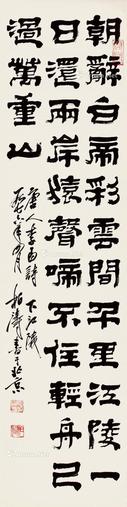 朝辭白帝彩雲間千里江陵一
日還兩岸猿聲啼不住輕舟已
過萬重山
唐人李白詩 下江陵
柏濤書于北京